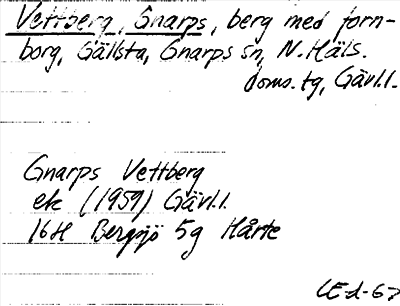 Vettberg, Gnarps, berg med forn-
borg, Gällsta, Gnarps sn, N. Häls.
doms. tg, Gävl.l.
Gnarps Vettberg
ek (1959) Gävl.l.
16H Bergsjö 5g Hårte
CE-d-67